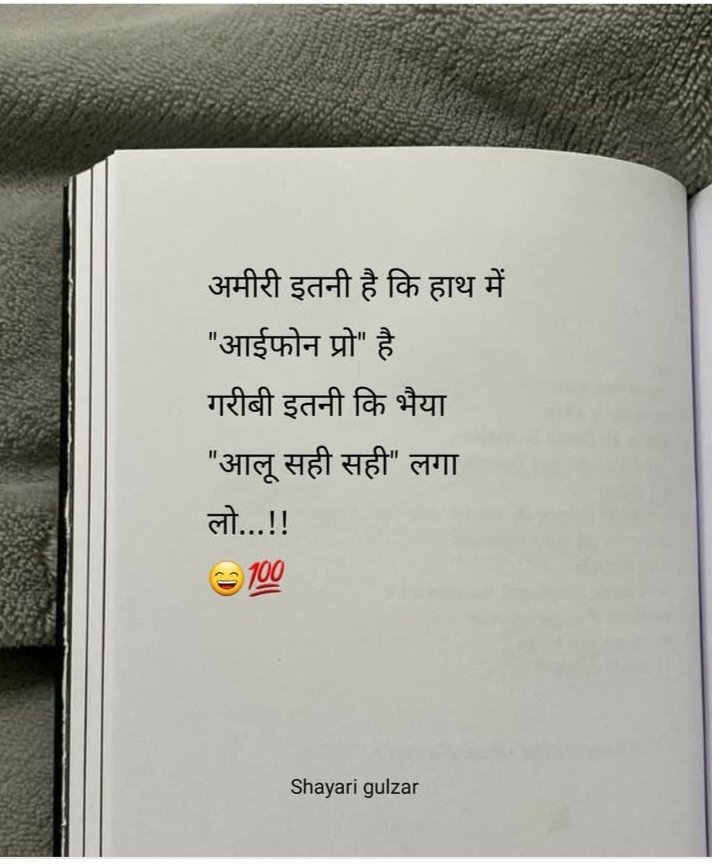 अमीरी इतनी है कि हाथ में
"आईफोन प्रो" है
गरीबी इतनी कि भैया
"आलू सही सही" लगा
लो...!!
😄💯
Shayari gulzar